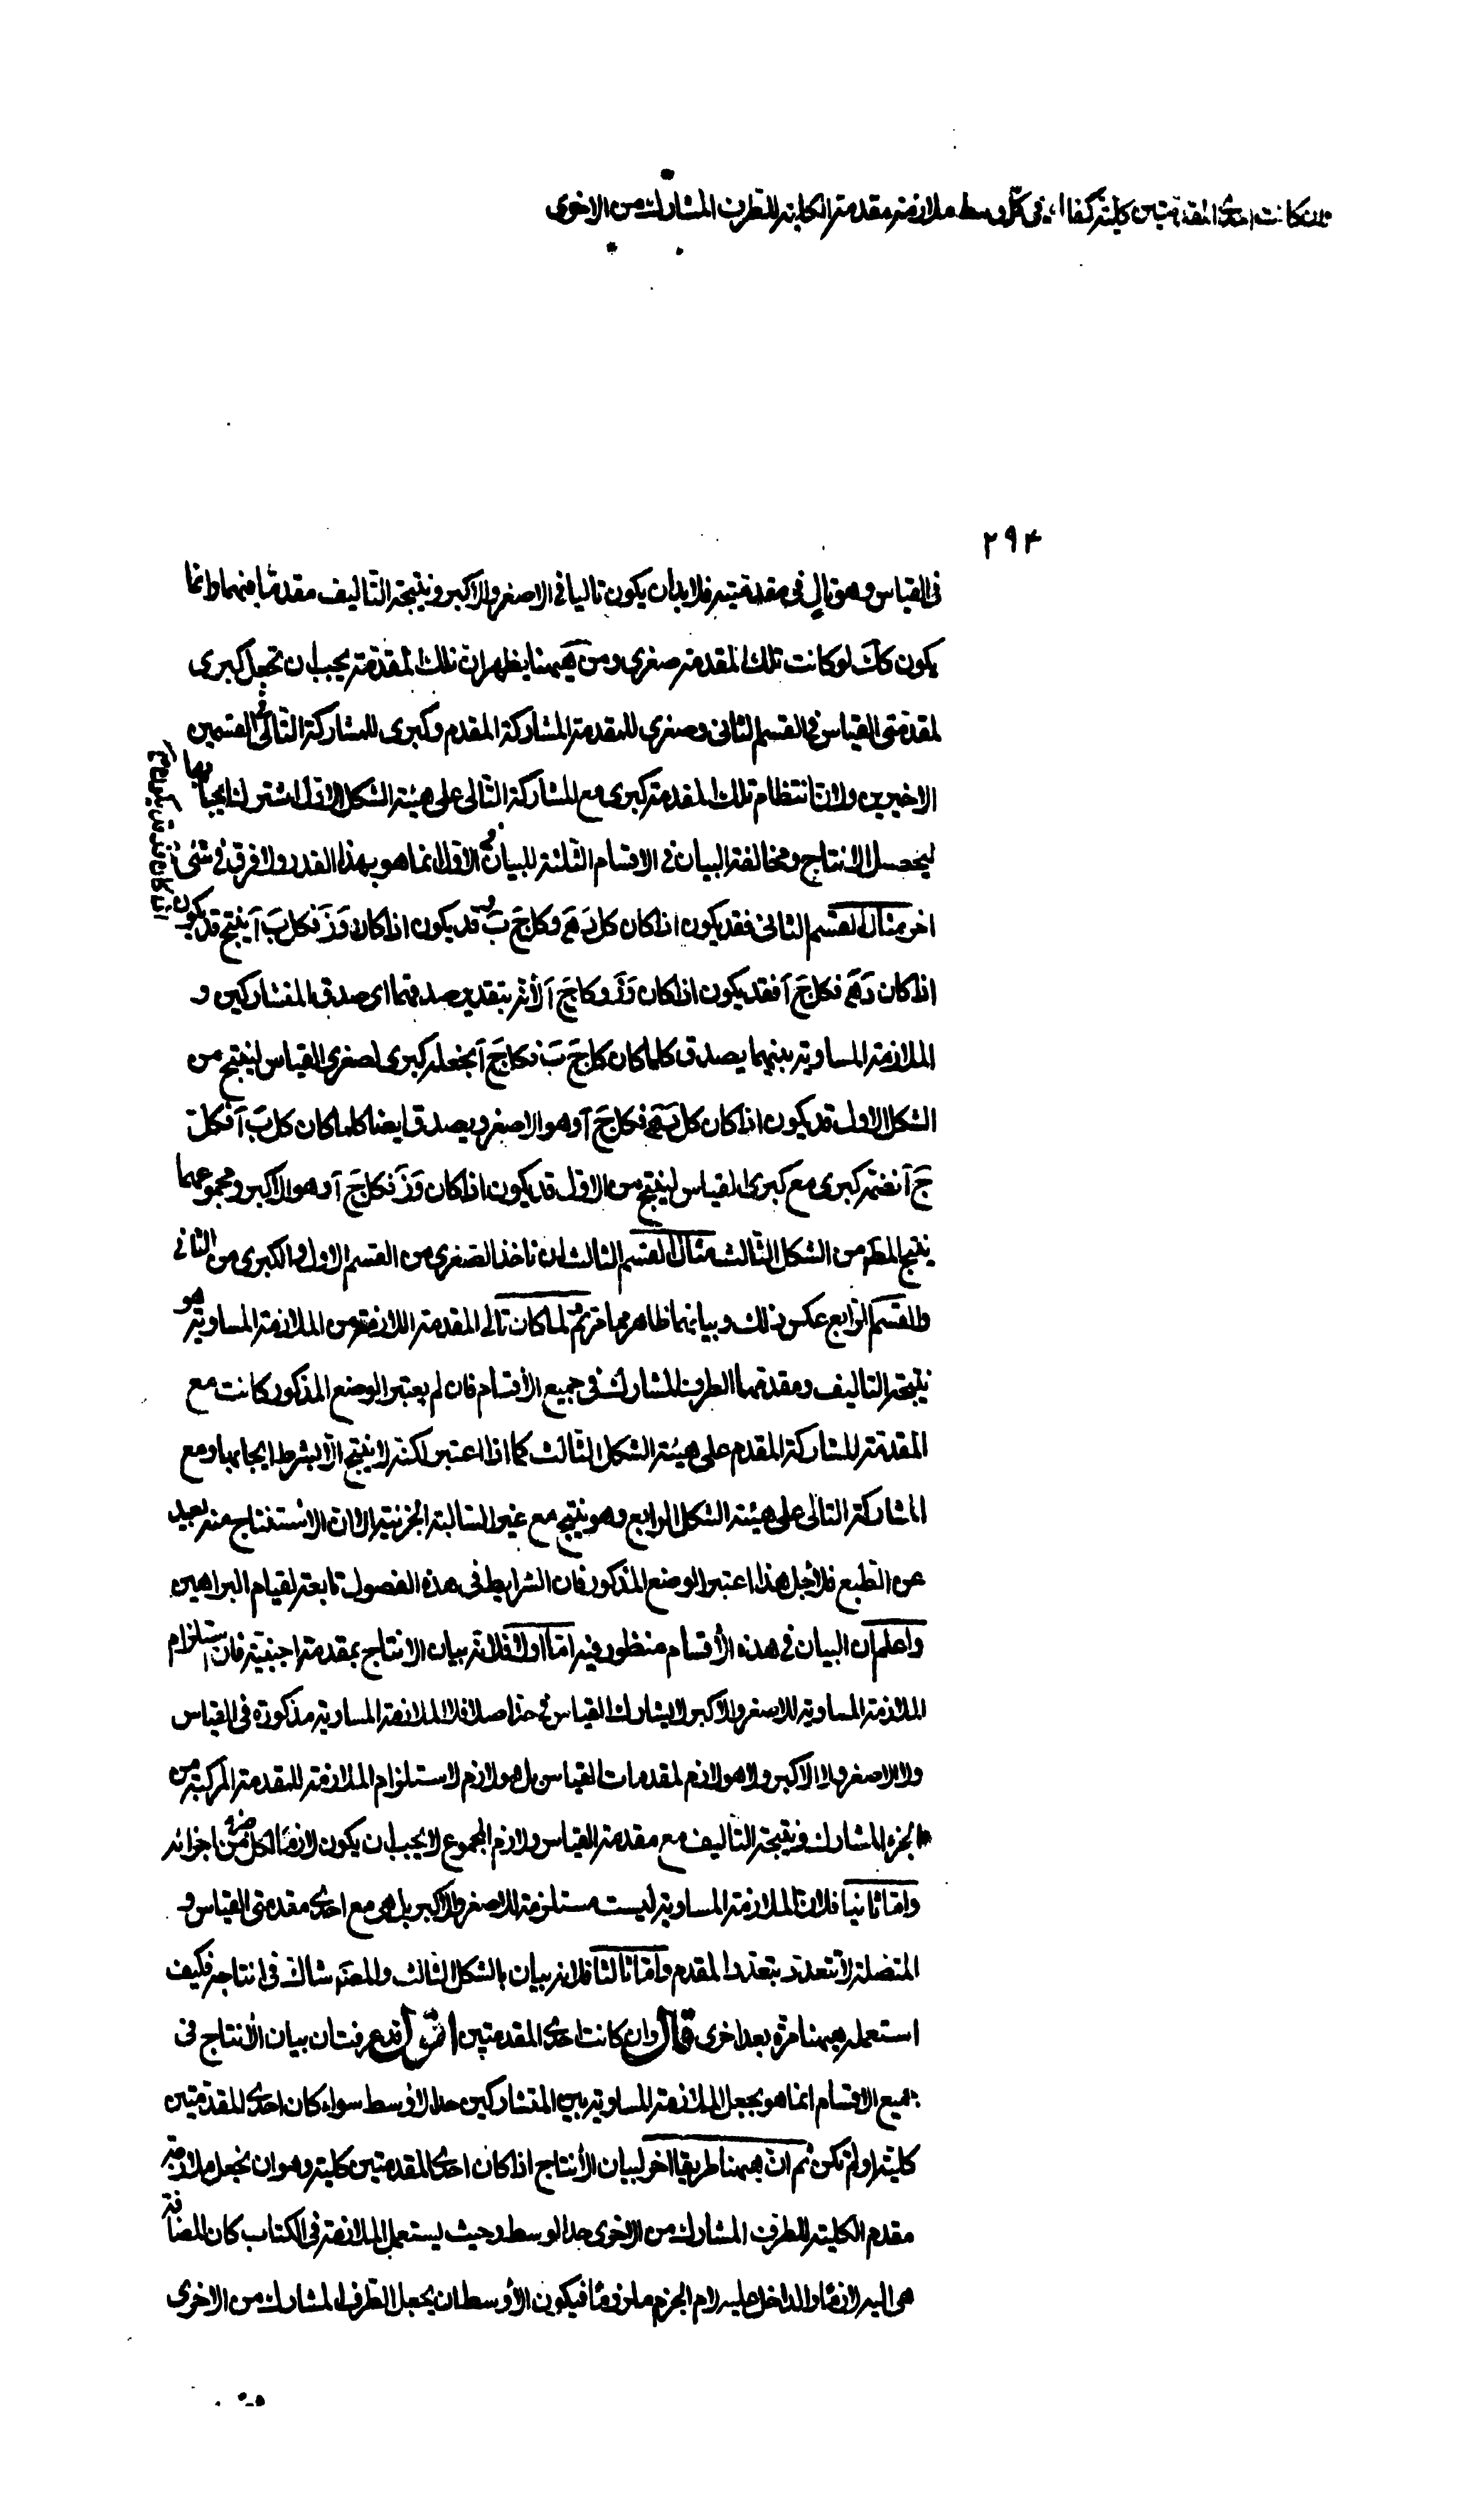 وان كانت احدى المقدمتين كلية كفانا في كل وسط ملازمة مقدمة الكلية للطرف المشارك من الاخرى
۲۹۴
في القياس وهو تالٍ في مقدمتيه فلا بد ان يكون تاليا في الاصغر والاكبر ونتيجة التأليف مقدما فيهما وانما
يكون كك لو كانت تلك المقدمة صغرى ومن هيهنا يظهر ان تلك المقدمة يجب ان تجعل كبرى
لمقدمتي القياس في القسم الثاني وصغرى للمقدمة المشاركة المقدم وكبرى للمشاركة التالي في القسمين
الاخيرين ولان انتظام تلك المقدمة كبرى مع المشاركة التالي على هيئة الشكل الاول اشترط ايجابها
ليحصل الانتاج ومخالفة البيان في الاقسام الثلثة للبيان في الاول انما هو بهذا القدر ولا فرق في شئ
اخر مثال القسم الثاني فقد يكون اذا كان كل دَ هَ فكل جَ بَ وقد يكون اذا كان وَ زَ فكل بَ آ ينتج قد يكون
اذا كان دَ هَ فكل جَ آ فقد يكون اذا كان وَ زَ وكل جَ آ لأنه بتقدير صدقهما اى صدق المتشاركين و
الملازمة المساوية بينهما يصدق كلما كان كل جَ بَ فكل جَ آ نجعله كبرى لصغرى القياس لينتج من
الشكل الاول قد يكون اذا كان كل دَ هَ فكل جَ آ وهو الاصغر ويصدق ايضا كلما كان كل بَ آ فكل
جَ آ نضمه كبرى مع كبرى القياس لينتج من الاول قد يكون اذا كان وَ زَ فكل جَ آ وهو الاكبر ومجموعهما
ينتج المط من الشكل الثالث مثال القسم الثالث ان تاخذ الصغرى من القسم الاول والكبرى من الثاني
والقسم الرابع عكس ذلك وبيانهما ظاهر مما مر ثم لما كان تالى المقدمة اللازمة من الملازمة المساوية هو
نتيجة التاليف ومقدمها الطرف المشارك في جميع الأقسام فان لم يعتبر الوضع المذكور كانت مع
المقدمة المشاركة المقدم على هيئة الشكل الثالث كما اذا اعتبر لكنه لا ينتج الا بشرط ايجابها ومع
المشاركة التالى على هيئة الشكل الرابع وهو ينتج مع غير السالبة الجزئية الا ان الاستنتاج منه بعيد
عن الطبع فلأجل هذا اعتبر الوضع المذكور فان الشرايط في هذه الفصول تابعة لقيام البراهين
واعلم ان البيان في هذه الأقسام منظور فيه اما اولا فلانه بيان الانتاج بمقدمة اجنبية فان استلزام
الملازمة المساوية للاصغر والاكبر لا يشارك القياس في حد اصلا فلا الملازمة المساوية مذكورة في القياس
ولا الاصغر ولا الاكبر ولا هو لازم لمقدمات القياس بل هو لازم لاستلزام الملازمة للمقدمة المركبة من
الجزء المشارك ونتيجة التاليف مع مقدمة القياس ولازم المجموع لا يجب ان يكون لازما لكل جزء من اجزائه
واما ثانيا فلان الملازمة المساوية ليست مستلزمة للاصغر والاكبر بل هي مع احدى مقدمتي القياس و
المتصلة لا تتعدد بتعدد المقدم واما ثالثا فلانه بيان بالشكل الثالث والمصنف شاك في انتاجه فكيف
استعمله هيهنا مرة بعد اخرى قال وان كانت احدى المقدمتين اقول قد عرفت ان بيان الأنتاج في
جميع الاقسام انما هو بجعل الملازمة المساوية بين المتشاركين حدا لاوسط سواء كان احدى المقدمتين
كلية او لم تكن ثم ان هيهنا طريقا اخر لبيان الأنتاج اذا كان احدى المقدمتين كلية وهو ان نجعل ملازمة
مقدم الكلية للطرف المشارك من الاخرى حدا لوسط وحيث يستعمل الملازمة في الكتاب كان المضافة
هى اليه لازما والداخل عليه لام الجزم ملزوما فيكون الأوسط ان يجعل الطرف المشارك من الاخرى